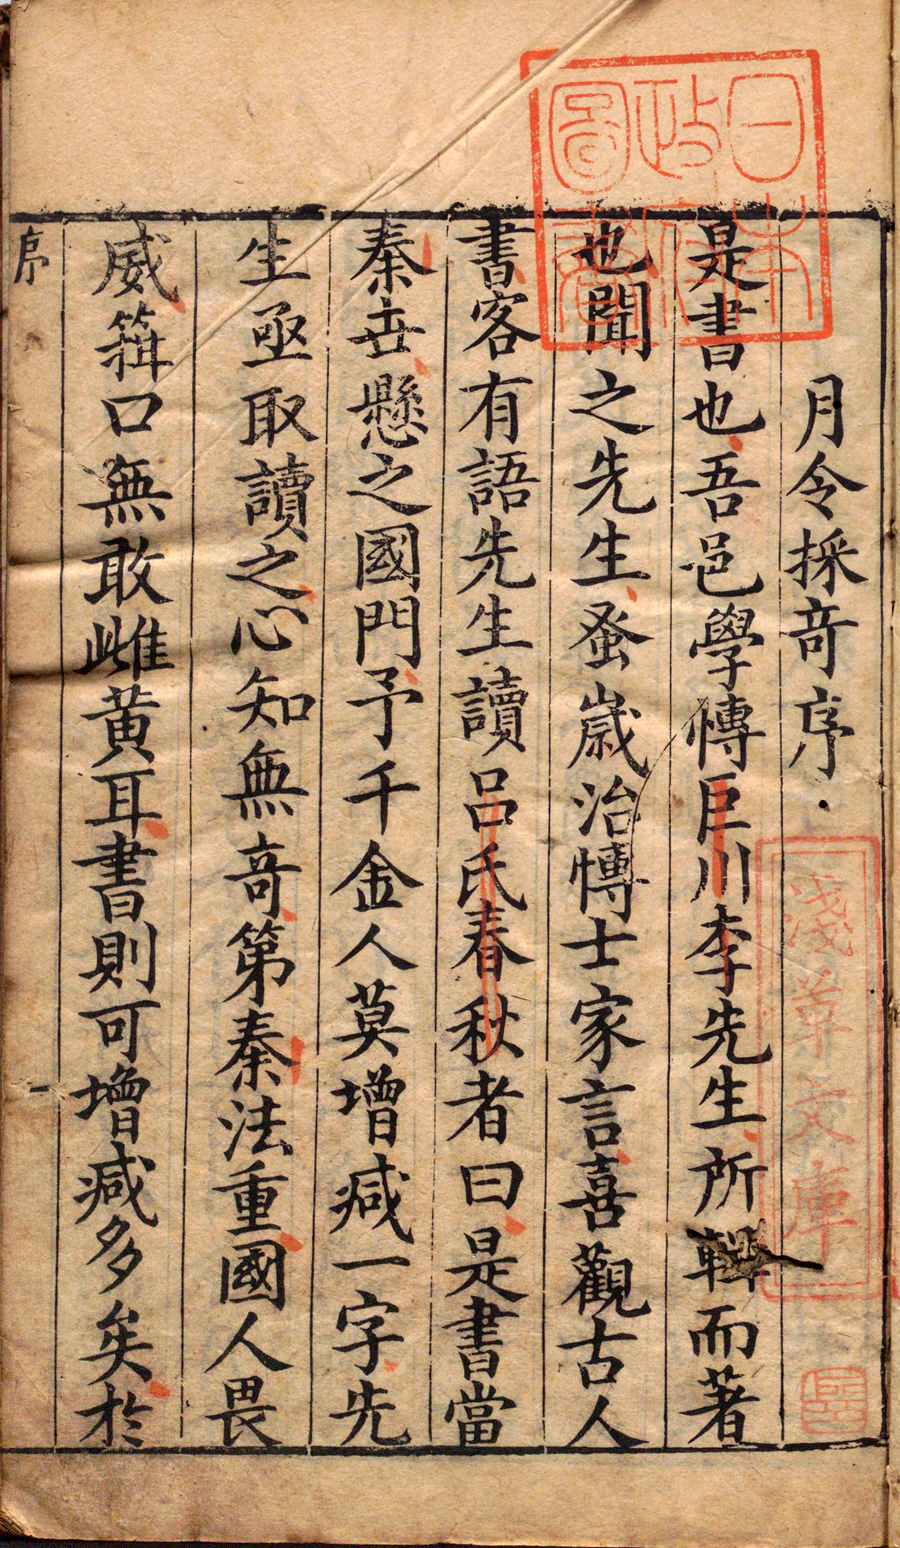 月令採竒序
是書也吾邑學慱巨川李先生所輯而著
也聞之先生蚤歲治慱士家言喜觀古人
書客有語先生讀呂氏春秋者曰是書當
秦世懸之國門予千金人莫增减一字先
生亟取讀之心知無竒第秦法重國人畏
威箝口無敢雌黄耳書則可增减多矣於
序
日本
政府
圖書
淺草文庫